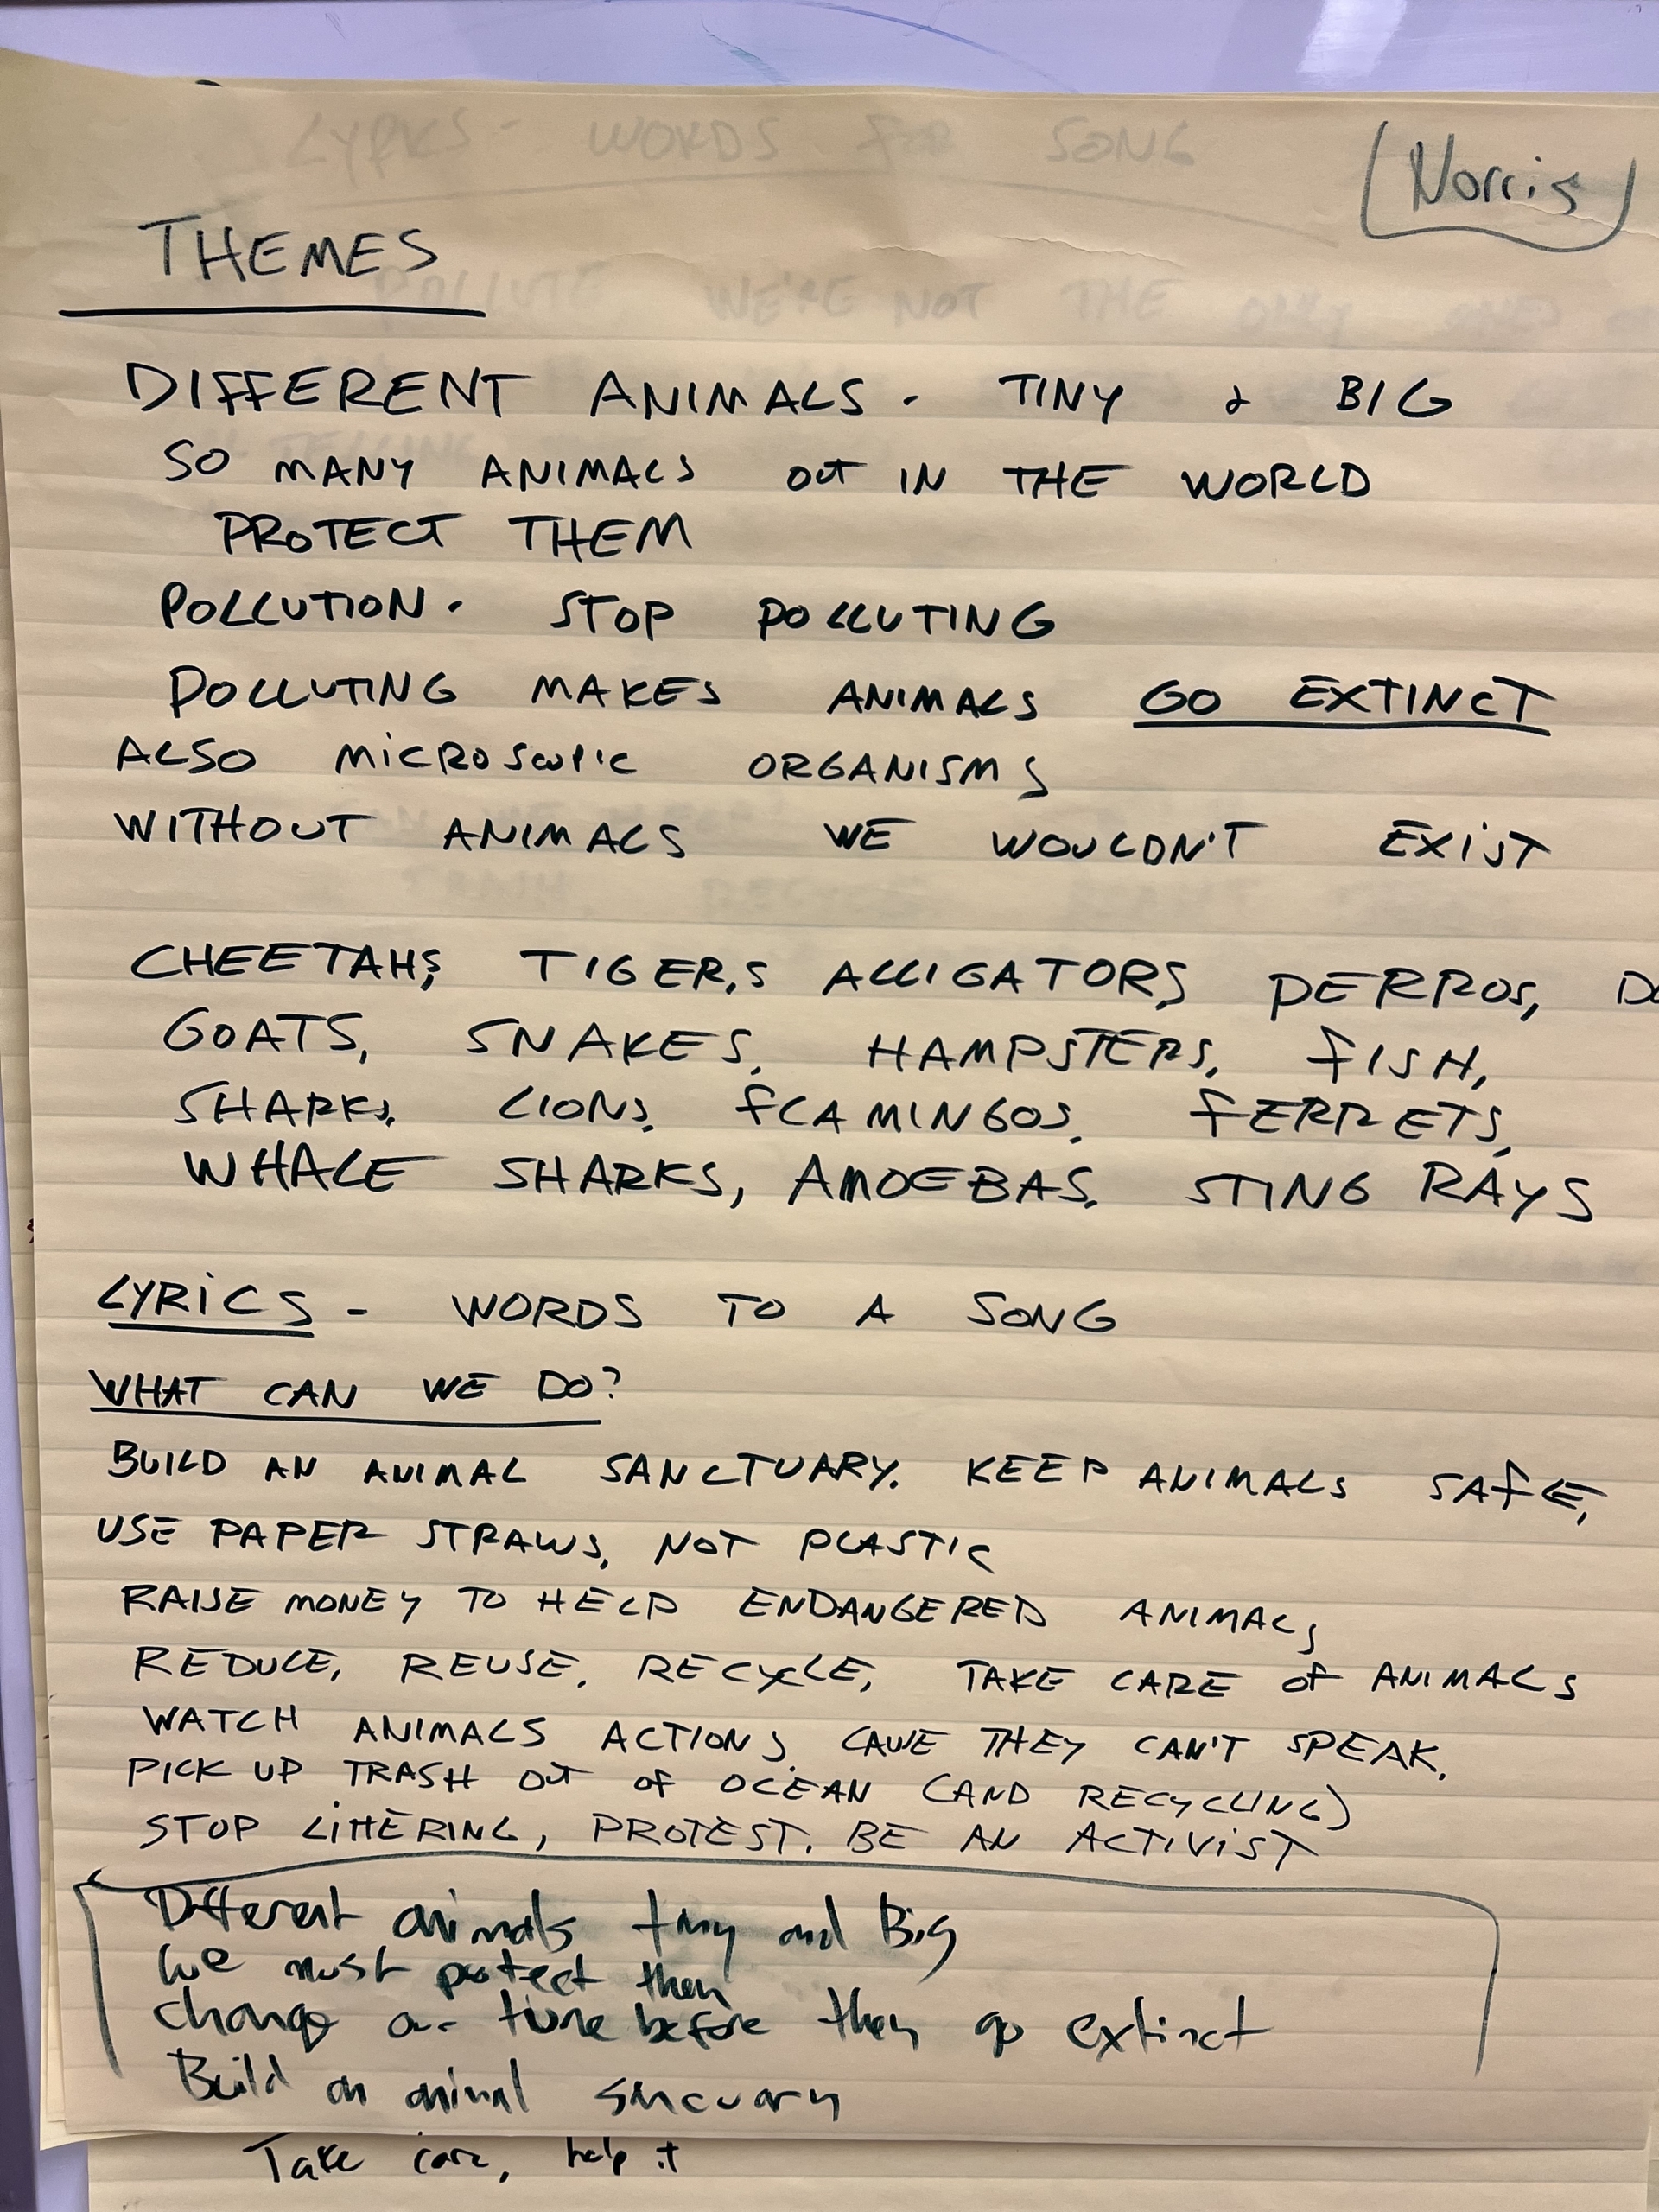 LYRICS - WORDS FOR SONG
(Norris)
THEMES
POLLUTE WE'RE NOT THE ONLY ONES
DIFFERENT ANIMALS. TINY & BIG
SO MANY ANIMALS OUT IN THE WORLD
PROTECT THEM
POLLUTION. STOP POLLUTING
POLLUTING MAKES ANIMALS GO EXTINCT
ALSO MICROSCOPIC ORGANISMS
WITHOUT ANIMALS WE WOULDN'T EXIST
CHEETAHS, TIGERS, ALLIGATORS, PERROS,
GOATS, SNAKES, HAMPSTERS, FISH,
SHARKS, LIONS, FLAMINGOS, FERRETS,
WHALE SHARKS, AMOEBAS, STING RAYS
LYRICS - WORDS TO A SONG
WHAT CAN WE DO?
BUILD AN ANIMAL SANCTUARY. KEEP ANIMALS SAFE,
USE PAPER STRAWS, NOT PLASTIC
RAISE MONEY TO HELP ENDANGERED ANIMALS
REDUCE, REUSE, RECYCLE, TAKE CARE OF ANIMALS
WATCH ANIMALS ACTIONS, CAUSE THEY CAN'T SPEAK.
PICK UP TRASH OUT OF OCEAN (AND RECYCLING)
STOP LITTERING, PROTEST. BE AN ACTIVIST
Different animals tiny and Big
we must protect them
change our tune before they go extinct
Build an animal sancuary
Take care, help it